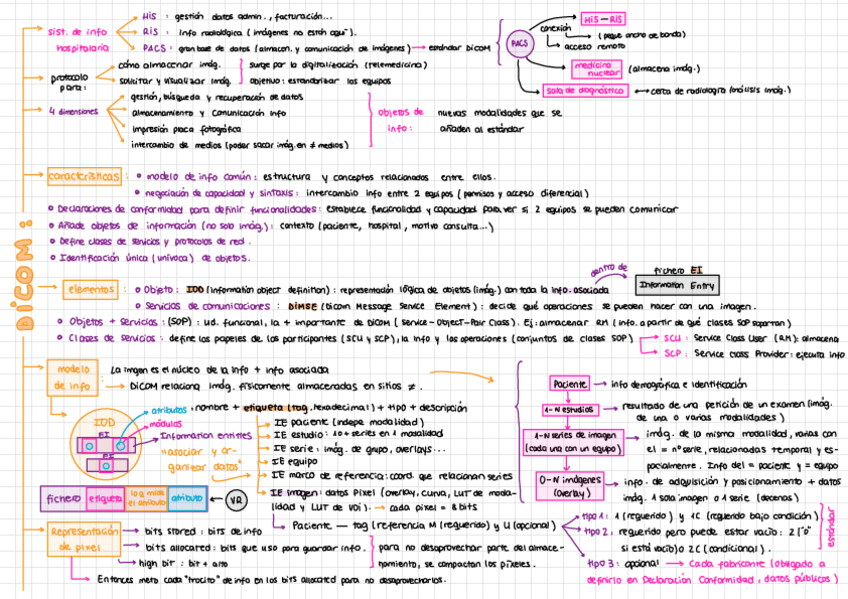 DICOM:
sist. de info hospitalaria
HIS: gestión datos admin., facturación...
RIS: Info radiológica (imágenes no están aquí).
PACS: gran base de datos (almacen. y comunicación de imágenes) → estándar DICOM
PACS
HIS - RIS
conexión
(peque ancho de banda)
acceso remoto
medicina nuclear (almacena imág.)
sala de diagnóstico ← cerca de radiólogo (análisis imág.)
protocolo para:
cómo almacenar imág.
solicitar y visualizar imág.
surge por la digitalización (telemedicina)
objetivo: estandarizar los equipos
4 dimensiones
gestión, búsqueda y recuperación de datos
almacenamiento y comunicación info
impresión placa fotográfica
intercambio de medios (poder sacar imág. en ≠ medios)
objetos de info:
nuevas modalidades que se añaden al estándar
características:
modelo de info común: estructura y conceptos relacionados entre ellos.
negociación de capacidad y sintaxis: intercambio info entre 2 equipos (permisos y acceso diferencial)
Declaraciones de conformidad para definir funcionalidades: establece funcionalidad y capacidad para ver si 2 equipos se pueden comunicar
Añade objetos de información (no solo imág.): contexto (paciente, hospital, motivo consulta...)
Define clases de servicios y protocolos de red.
Identificación única (unívoca) de objetos.
elementos:
Objeto: IOD (information object definition): representación lógica de objetos (imág.) con toda la info. asociada
dentro de
fichero EI
Information Entry
Servicios de comunicaciones: DIMSE (Dicom Message Service Element): decide qué operaciones se pueden hacer con una imagen.
Objetos + servicios: (SOP): ud. funcional, la + importante de DICOM (service-Object-Pair Class). Ej: almacenar RM (info. a partir de qué clases SOP soportan)
Clases de servicios: define los papeles de los participantes (SCU y SCP), la info y las operaciones (conjuntos de clases SOP)
SCU: Service Class User (RM): almacena
SCP: Service Class Provider: ejecuta info
modelo de info:
La imagen es el núcleo de la info + info asociada
DICOM relaciona imág. físicamente almacenadas en sitios ≠.
IOD
EI
EI
atributos: nombre + etiqueta (tag, hexadecimal) + tipo + descripción
módulos
Information entities
"asociar y organizar datos"
IE paciente (indepe modalidad)
IE estudio: 1 o + series en 1 modalidad
IE serie: imág. de grupo, overlays...
IE equipo
IE marco de referencia: coord. que relacionan series
IE imagen: datos pixel (overlay, curva, LUT de modalidad y LUT de VOI). → cada pixel = 8 bits
Paciente — tag (referencia M (requerido) y U (opcional)
fichero
etiqueta
atributo
VR
Paciente → info demográfica e identificación
1-N estudios → resultado de una petición de un examen (imág. de una o varias modalidades)
1-N series de imagen (cada una con un equipo)
imág. de la misma modalidad, varias con el = nº serie, relacionadas temporal y espacialmente. Info del = paciente y = equipo
0-N imágenes (overlay)
info. de adquisición y posicionamiento + datos imág. 1 sola imagen o 1 serie (decenas)
tipo 1: 1 (requerido) y 1C (requerido bajo condición)
tipo 2: requerido pero puede estar vacío: 2 ("0" si está vacío) o 2C (condicional).
estándar
tipo 3: opcional → Cada fabricante (obligado a definirlo en Declaración Conformidad, datos públicos)
Representación de pixel
bits stored: bits de info
bits allocated: bits que uso para guardar info.
high bit: bit + alto
para no desaprovechar parte del almacenamiento, se compactan los píxeles.
Entonces meto cada "trocito" de info en los bits allocated para no desaprovecharlos.